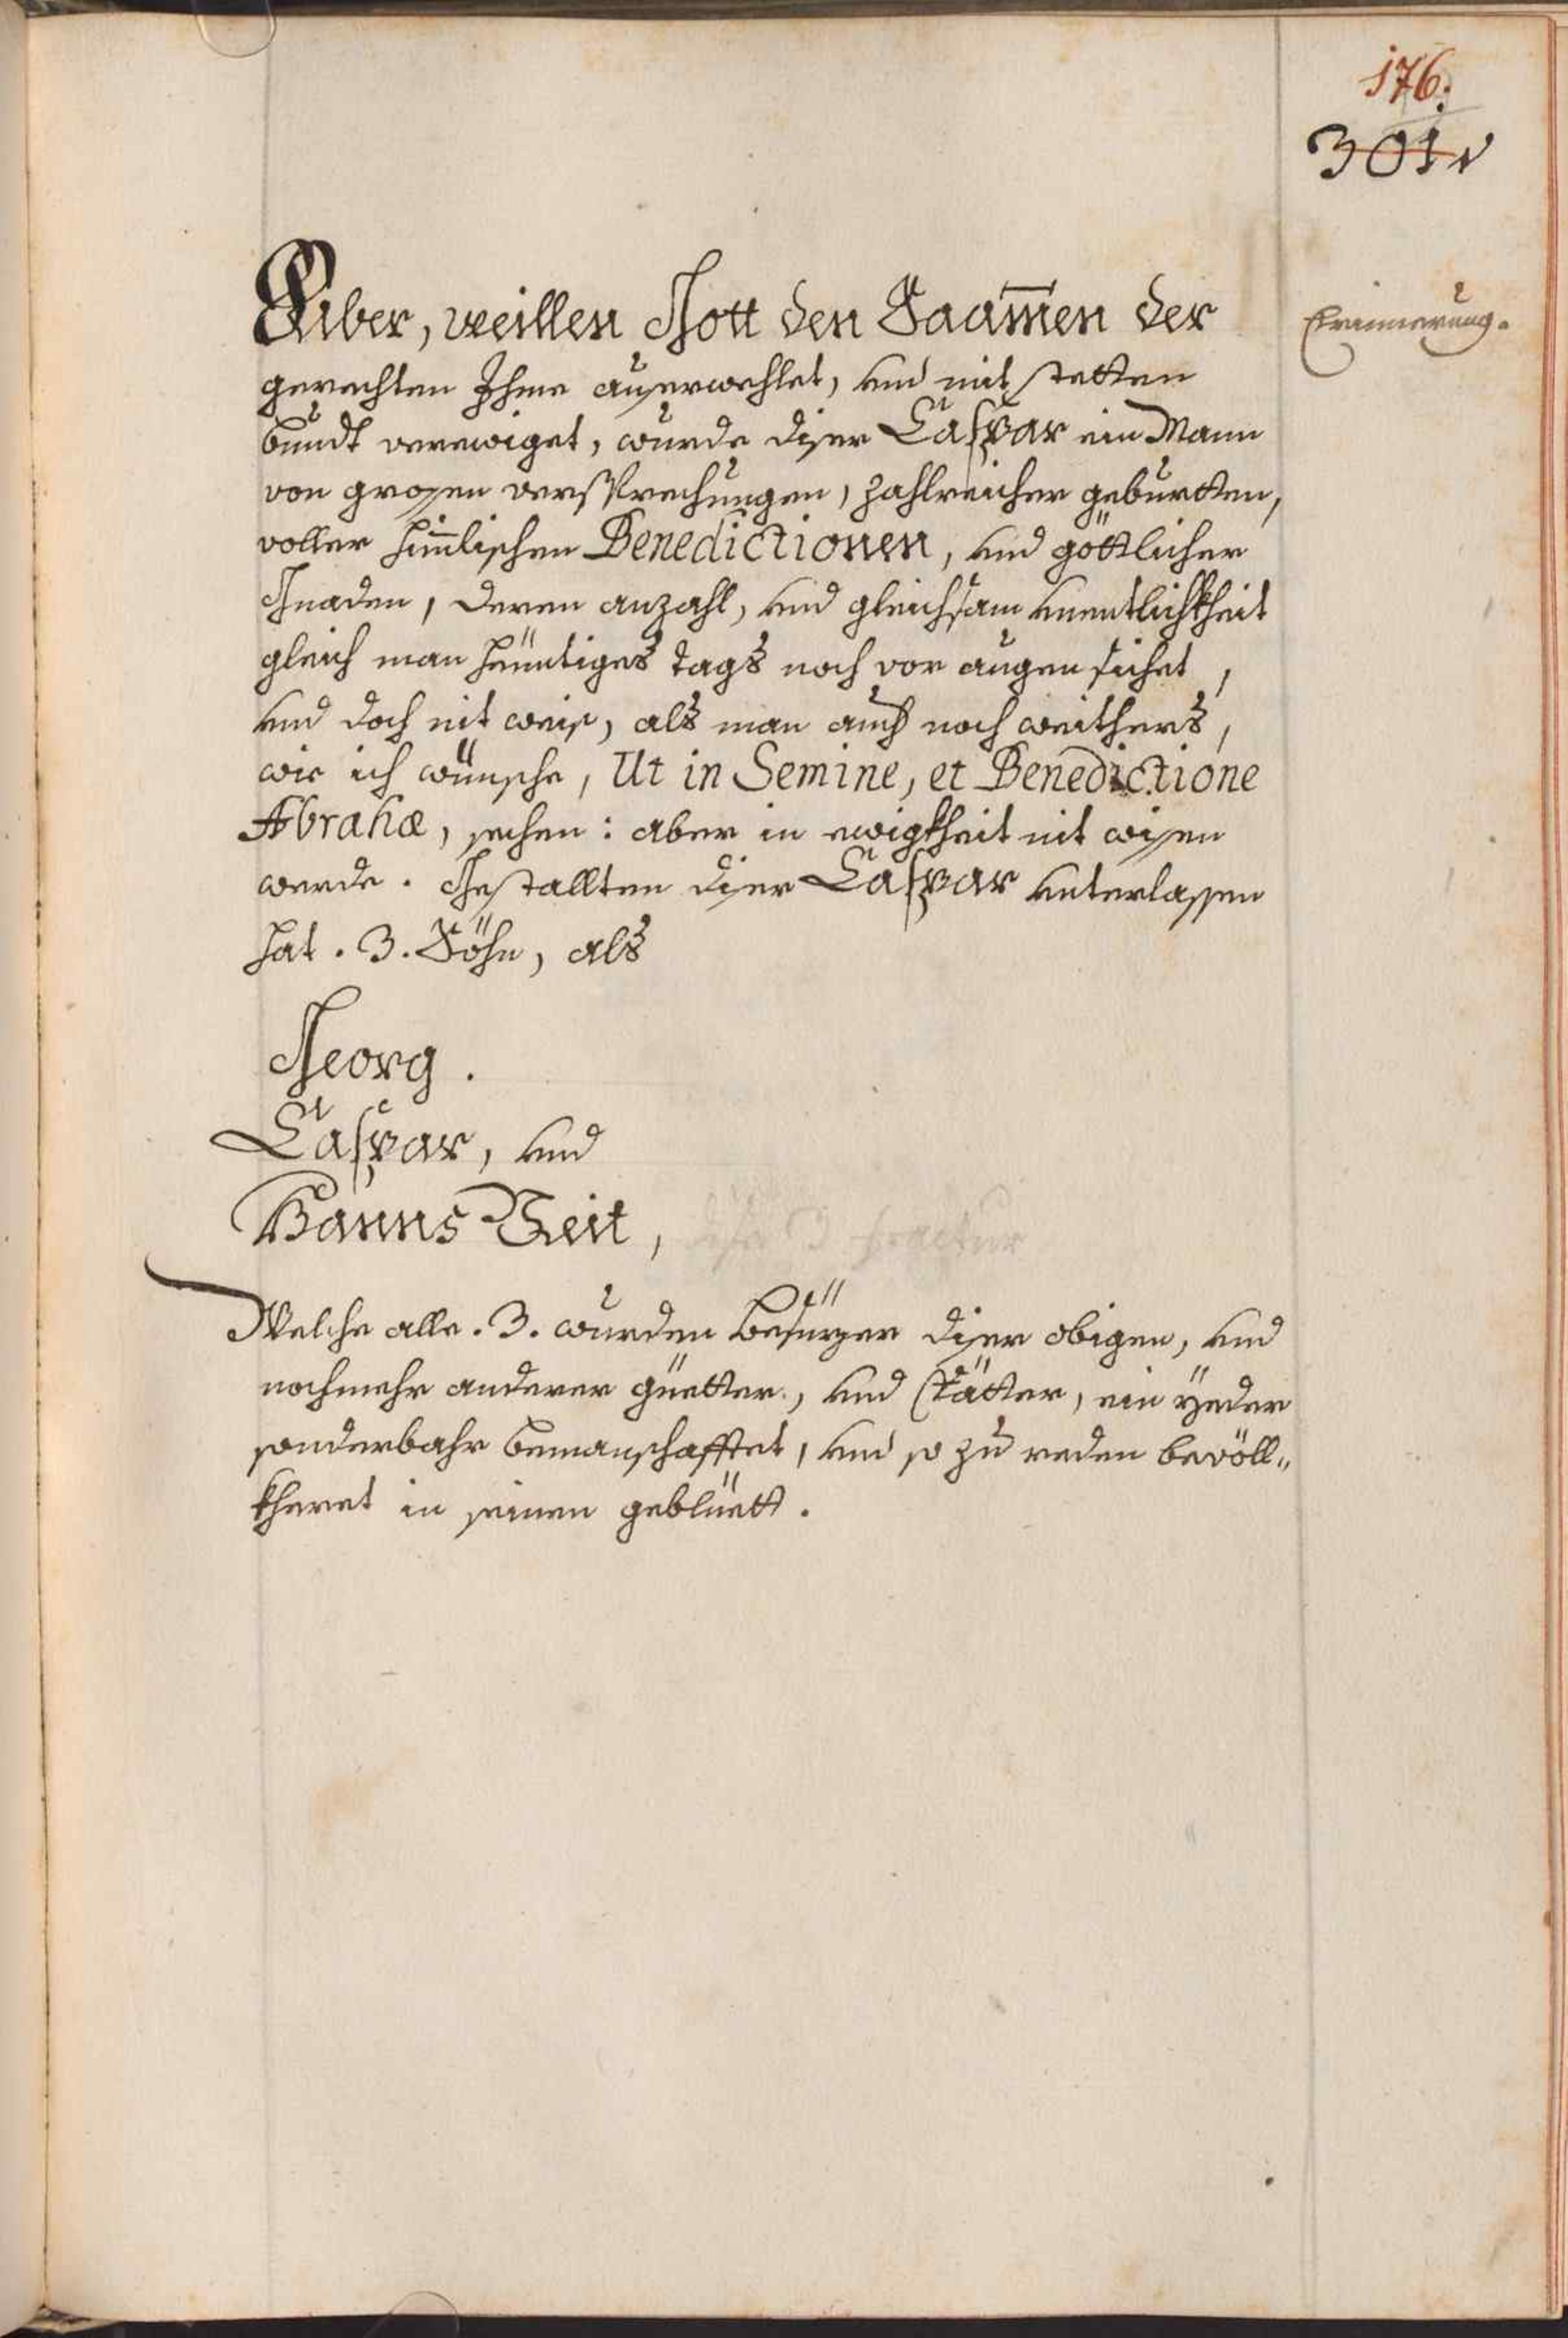 176.
301
Erinnerung.
Aber, weillen Gott den Saam̅en der
gerechten Ihme auserwehlet, und mit stetten
bundt verewiget, wurde diser Caspar ein Mann
von grosen versprechungen, zahlreicher geburtten,
voller him̅lischen Benedictionen, und göttlicher
Gnaden, deren anzahl, und gleichsam unentlichkheit
gleich man heüntiges tags noch vor augen sichet,
und doch nit weis, als man auch noch weithers,
wie ich wünsche, Ut in Semine, et Benedictione
Abrahæ, sechen: aber in ewigkheit nit wisen
werde. Gestallten diser Caspar unterlassen
hat. 3. Söhn, als
Georg.
Caspar, und
Hanns Veit,
Welche alle. 3. wurden Besüzer diser obigen, und
nochmehr anderer güetter, und Stätter, ein yeder
sonderbahr bemanschafftet, und so zu reden bevöll„
kheret in seinen geblüett.